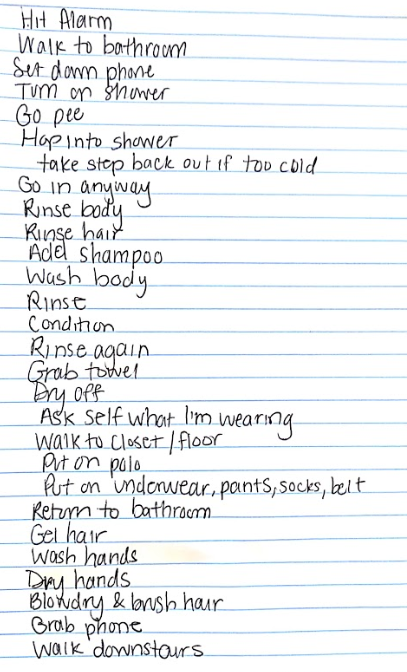 Hit Alarm
Walk to bathroom
Set down phone
Turn on shower
Go pee
Hop into shower
take step back out if too cold
Go in anyway
Rinse body
Rinse hair
Add shampoo
Wash body
Rinse
Condition
Rinse again
Grab towel
Dry off
Ask self what I'm wearing
Walk to closet/floor
Put on polo
Put on underwear, pants, socks, belt
Return to bathroom
Gel hair
Wash hands
Dry hands
Blowdry & brush hair
Grab phone
Walk downstairs